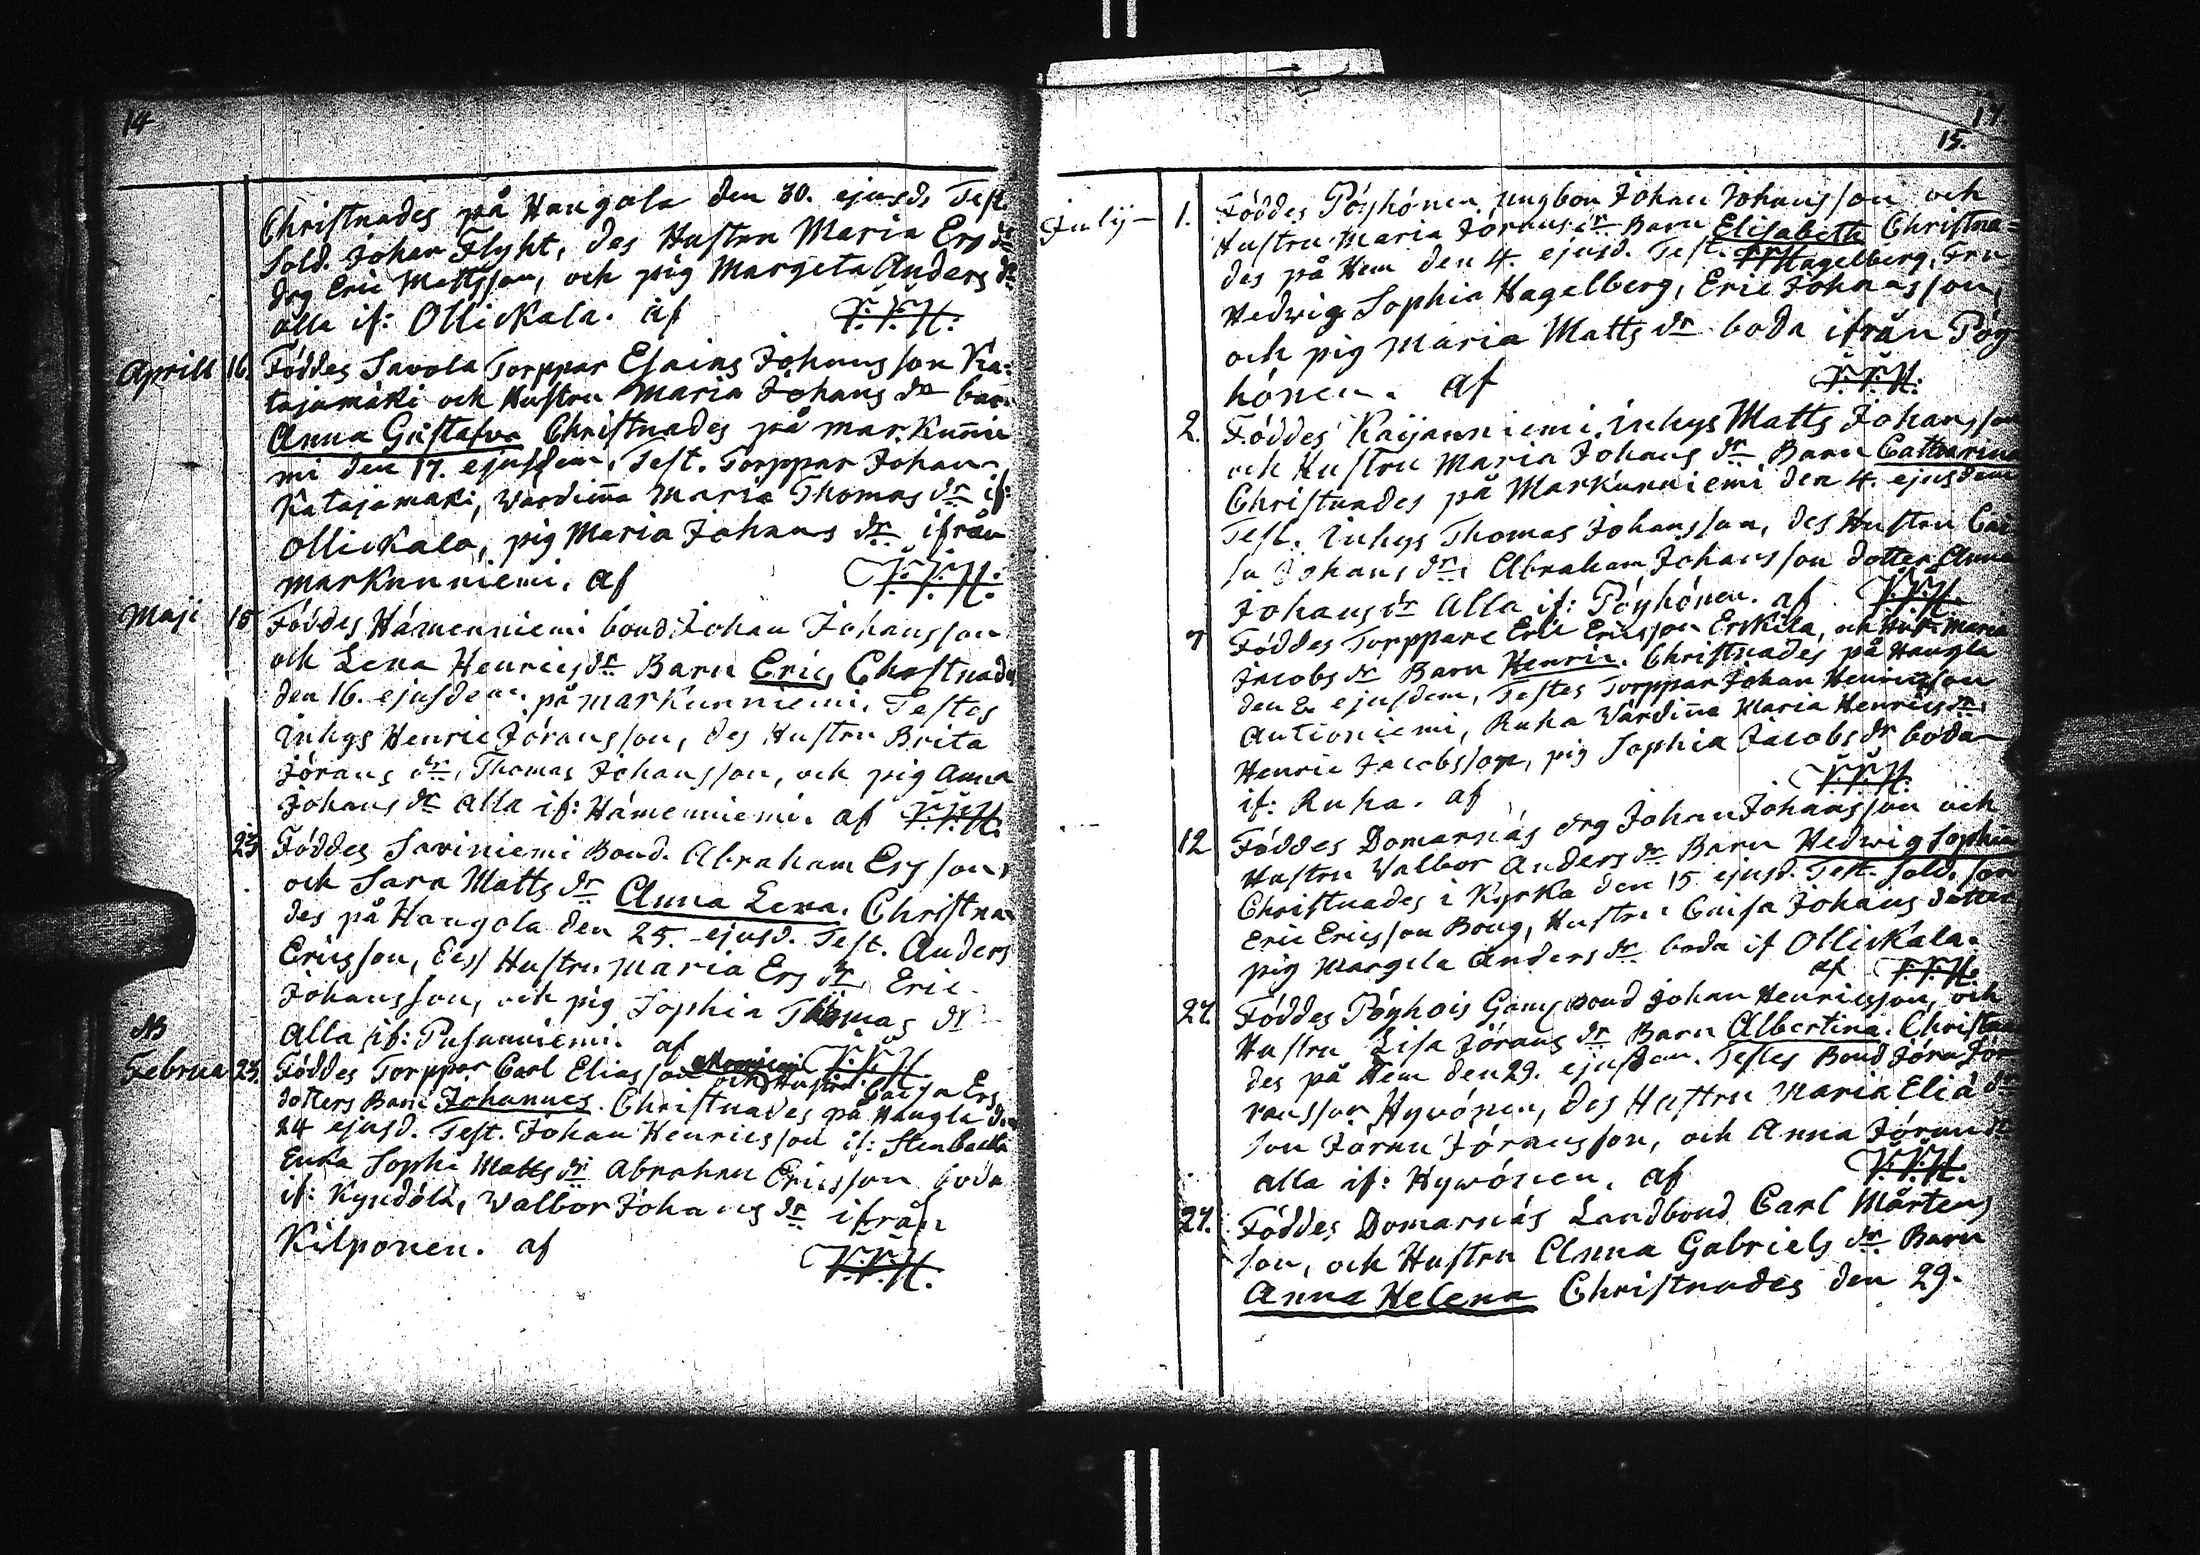 14
Christnades på Haugola den 30. ejusd. Test.
Sold. Johan Flyht, des Hustru Maria Ers dr
drg Eric Mattsson, och pig Margeta Anders dr
alla if: Ollickala. af V.V.H.
Aprill 16. Föddes Savola Torppar Esaias Johansson Ka-
tajamäki och Hustru Maria Johans dr barn
Anna Gustafva Christnades på Markunnie
mi den 17. ejusdem. Test. Torppar Johan
Katajamaki, Wärdinna Maria Thomas dr if:
Ollickala, pig Maria Johans dr ifrån
Markunniemi. af V.V.H.
Maji 15 Föddes Hämenniemi bond Johan Johansson
och Lena Henrics dr Barn Eric, Christnades
den 16. ejusdem på Markunniemi. Testes
Inhys Henric Jöransson, des Hustru Brita
Jörans dr, Thomas Johansson, och pig Anna
Johans dr alla if: Hämenniemi. af V.V.H.
23 Föddes Saviniemi Bond. Abraham Ersson,
och Sara Matts dr Anna Lena. Christna-
des på Haugola den 25. ejusd. Test. Anders
Ericsson, dess Hustru Maria Ers dr, Eric
Johansson, och pig Sophia Thomas dr
Alla if: Pusunniemi. af V.V.H.
NB
Februa 23. Föddes Torppar Carl Eliasson och Hustru Caisa Ers
dotters Barn Johannes. Christnades på Haugla den
24 ejusd. Test. Johan Henricsson if: Stenbacka
Enka Sophi Matts dr Abraham Ericsson boda
if: Kyndölä, Walbor Johans dr ifrån
Kilponen. af V.V.H.
17
15.
Julÿ 1. Föddes Pöyhönen ungbon Johan Johansson och
Hustru Maria Jörans dr Barn Elisabeth Christna-
des på Hem den 4. ejusd. Test. Hagelberg, Fru
Hedwig Sophia Hagelberg, Eric Johansson,
och pig Maria Matts dr boda ifrån Pöy
hönen. af V.V.H.
2. Föddes Kaijanniemi Inhys Matts Johansson
och Hustru Maria Johans dr Barn Catharina
Christnades på Markunniemi den 4. ejusdem
Test. Inhys Thomas Johansson, des Hustru Cai
sa Johans dr, Abraham Johansson dotter Anna
Johans dr Alla if: Pöyhönen. af V.V.H.
7 Föddes Torppare Eric Ericsson Erkkila, och Hust. Maria
Jacobs dr Barn Henric. Christnades på Haugla
den 8. ejusdem, Testes Torppar Johan Henricsson
Autioniemi, Ruha Wärdinna Maria Henrics dr,
Henric Jacobsson, pig Sophia Jacobs dr boda
if: Ruha. af V.V.H.
12 Föddes Domarnäs drg Johan Johansson och
Hustru Walbor Anders dr Barn Hedwig Sophia
Christnades i Kyrka den 15 ejusd. Test. Sold. son
Eric Ericsson Boug, Hustru Caisa Johans dotter
pig Margeta Anders dr boda if Ollickala.
af V.V.H.
27. Föddes Pöyhois Gamg bond Johan Henricsson, och
Hustru Lisa Jörans dr Barn Albertina. Christna
des på Hem den 29. ejusdem. Testes Bond Jöran Jör
ransson Hywönen, des Hustru Maria Elia dr
son Jöran Jöransson, och Anna Jöran dr
alla if: Hywönen. af V.V.H.
27. Föddes Domarnäs Landbond Carl Mårtens
son, och Hustru Anna Gabriels dr Barn
Anna Helena Christnades den 29.